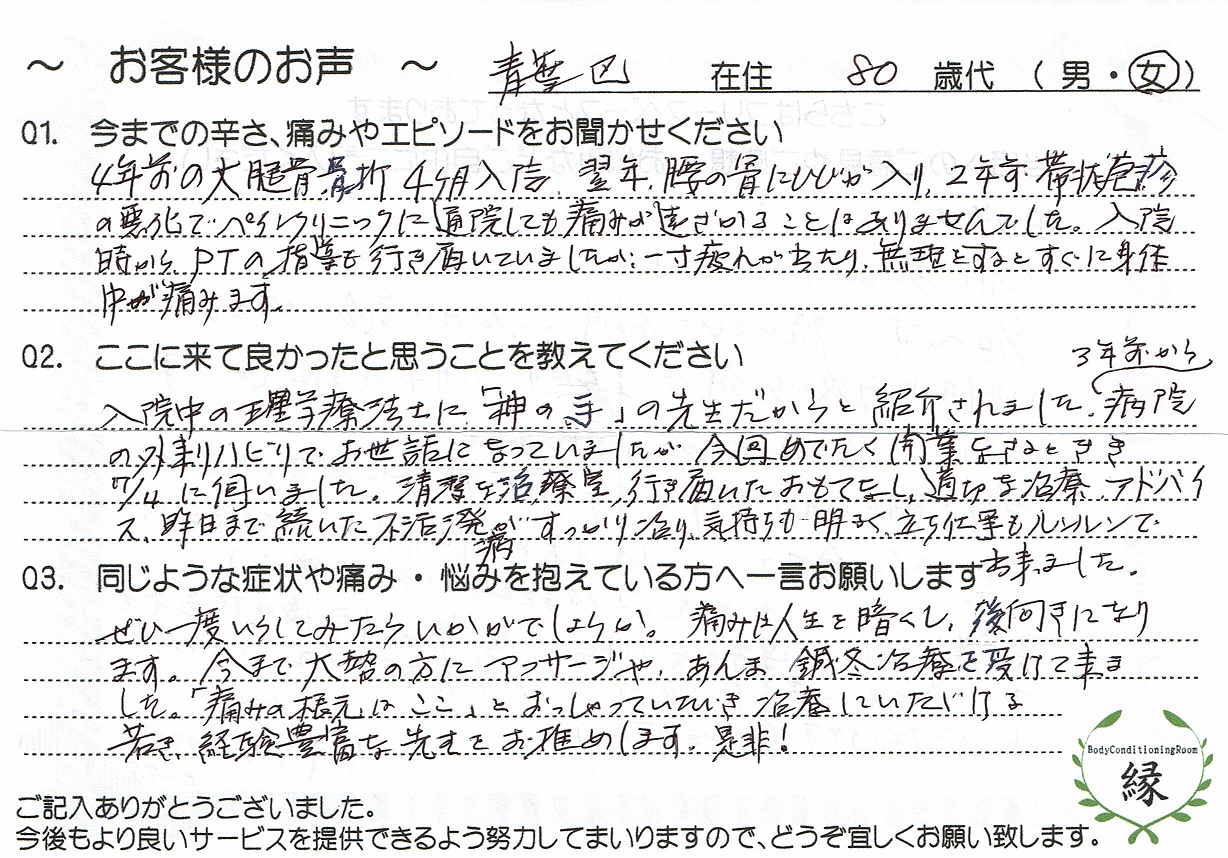 ～ お客様のお声 ～ 青葉区 在住 80 歳代 ( 男 ・ 女 )
Q1. 今までの辛さ、痛みやエピソードをお聞かせください
4年前の大腿骨骨折 4ヶ月入院、翌年、腰の骨にひびが入り、2年前、帯状疱疹
の悪化でペインクリニックに通院しても痛みが遠ざかることはありませんでした。入院
時から、PTの指導も行き届いていましたが、一寸疲れが出たり、無理をするとすぐに身体
中が痛みます。
Q2. ここに来て良かったと思うことを教えてください
3年前から
入院中の理学療法士に「神の手」の先生だからと紹介されました。病院
の外来リハビリでお世話になっていましたが 今回めでたく開業なさるときき
7/4 に伺いました。清潔な治療室、行き届いたおもてなし、適切な治療、アドバイ
ス、昨日まで続いた不活発病がすっかり治り、気持ちも明るく、立ち仕事もルンルンで
出来ました。
Q3. 同じような症状や痛み ・ 悩みを抱えている方へ一言お願いします
ぜひ一度いらしてみたらいかがでしょうか。 痛みは人生を暗くし、後向きになり
ます。今まで大勢の方にマッサージや、あんま 鍼灸治療を受けて来ま
した。「痛みの根元はここ」とおっしゃっていただき 治療していただける
若き、経験豊富な先生をお推めします。是非!
BodyConditioningRoom
縁
ご記入ありがとうございました。
今後もより良いサービスを提供できるよう努力してまいりますので、どうぞ宜しくお願い致します。